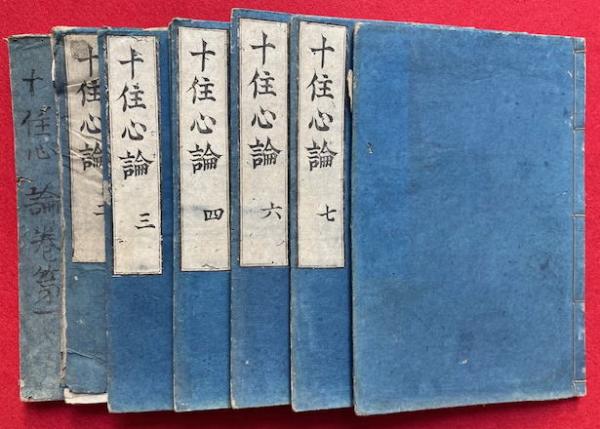 十住心論卷第一
十住心論 二
十住心論 三
十住心論 四
十住心論 六
十住心論 七